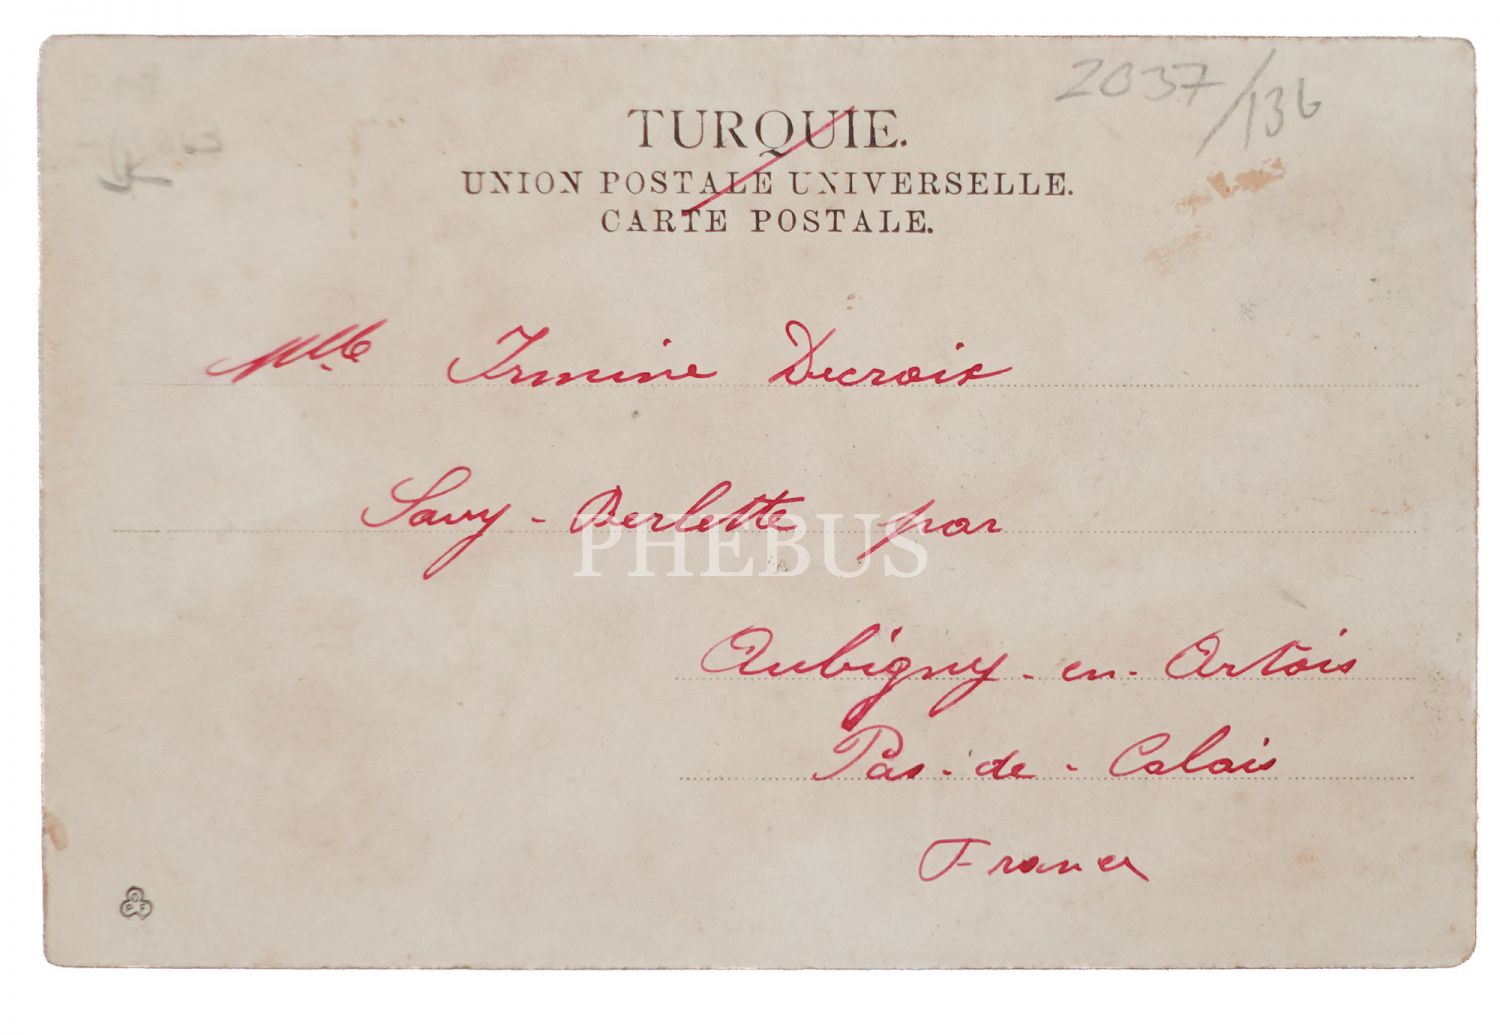 2037/136
TURQUIE.
UNION POSTALE UNIVERSELLE.
CARTE POSTALE.
Mlle Irmine Decroix
Savy-Berlette par
PHEBUS
Aubigny-en-Artois
Pas-de-Calais
France